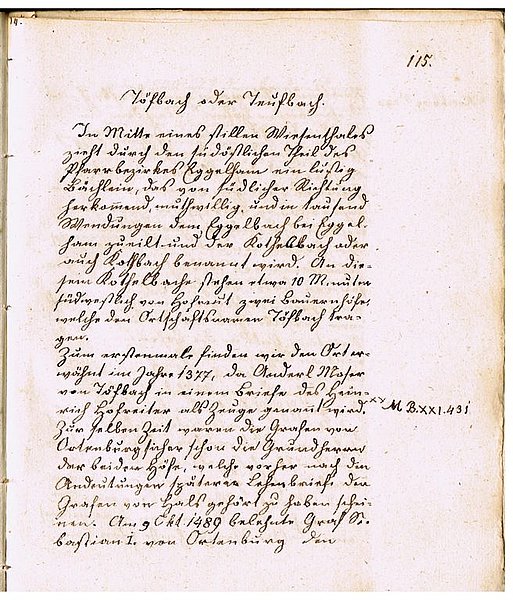 19.
115.
Töfbach oder Teufbach.
In Mitte eines stillen Wiesenthales
zieht durch den südöstlichen Theil des
Pfarrbezirkes Eggelham ein lustig
Bächlein, das von südlicher Richtung
herkommend, muthwillig, und in tausend
Wendungen dem Eggelbach bei Eggel-
ham zueilt und der Kothelbach oder
auch Kothbach benannt wird. An die-
sem Kothelbache stehen etwa 10 Minuten
südwestlich von Hofreut zwei Bauernhöfe,
welche den Ortschaftsnamen Töfbach tra-
gen.
Zum erstenmale finden wir den Ort er-
wähnt im Jahre 1377, da Anderl Moser
von Töfbach in einem Briefe des Hein-
rich Hofreiter als Zeuge genannt wird.
×× M B. XXI. 431
Zur selben Zeit waren die Grafen von
Ortenburg sicher schon die Grundherren
der beiden Höfe, welche vorher nach den
Andeutungen späterer Lehenbriefe den
Grafen von Hals gehört zu haben schei-
nen. Am 9 Okt. 1489 belehnte Graf Se-
bastian I. von Ortenburg den